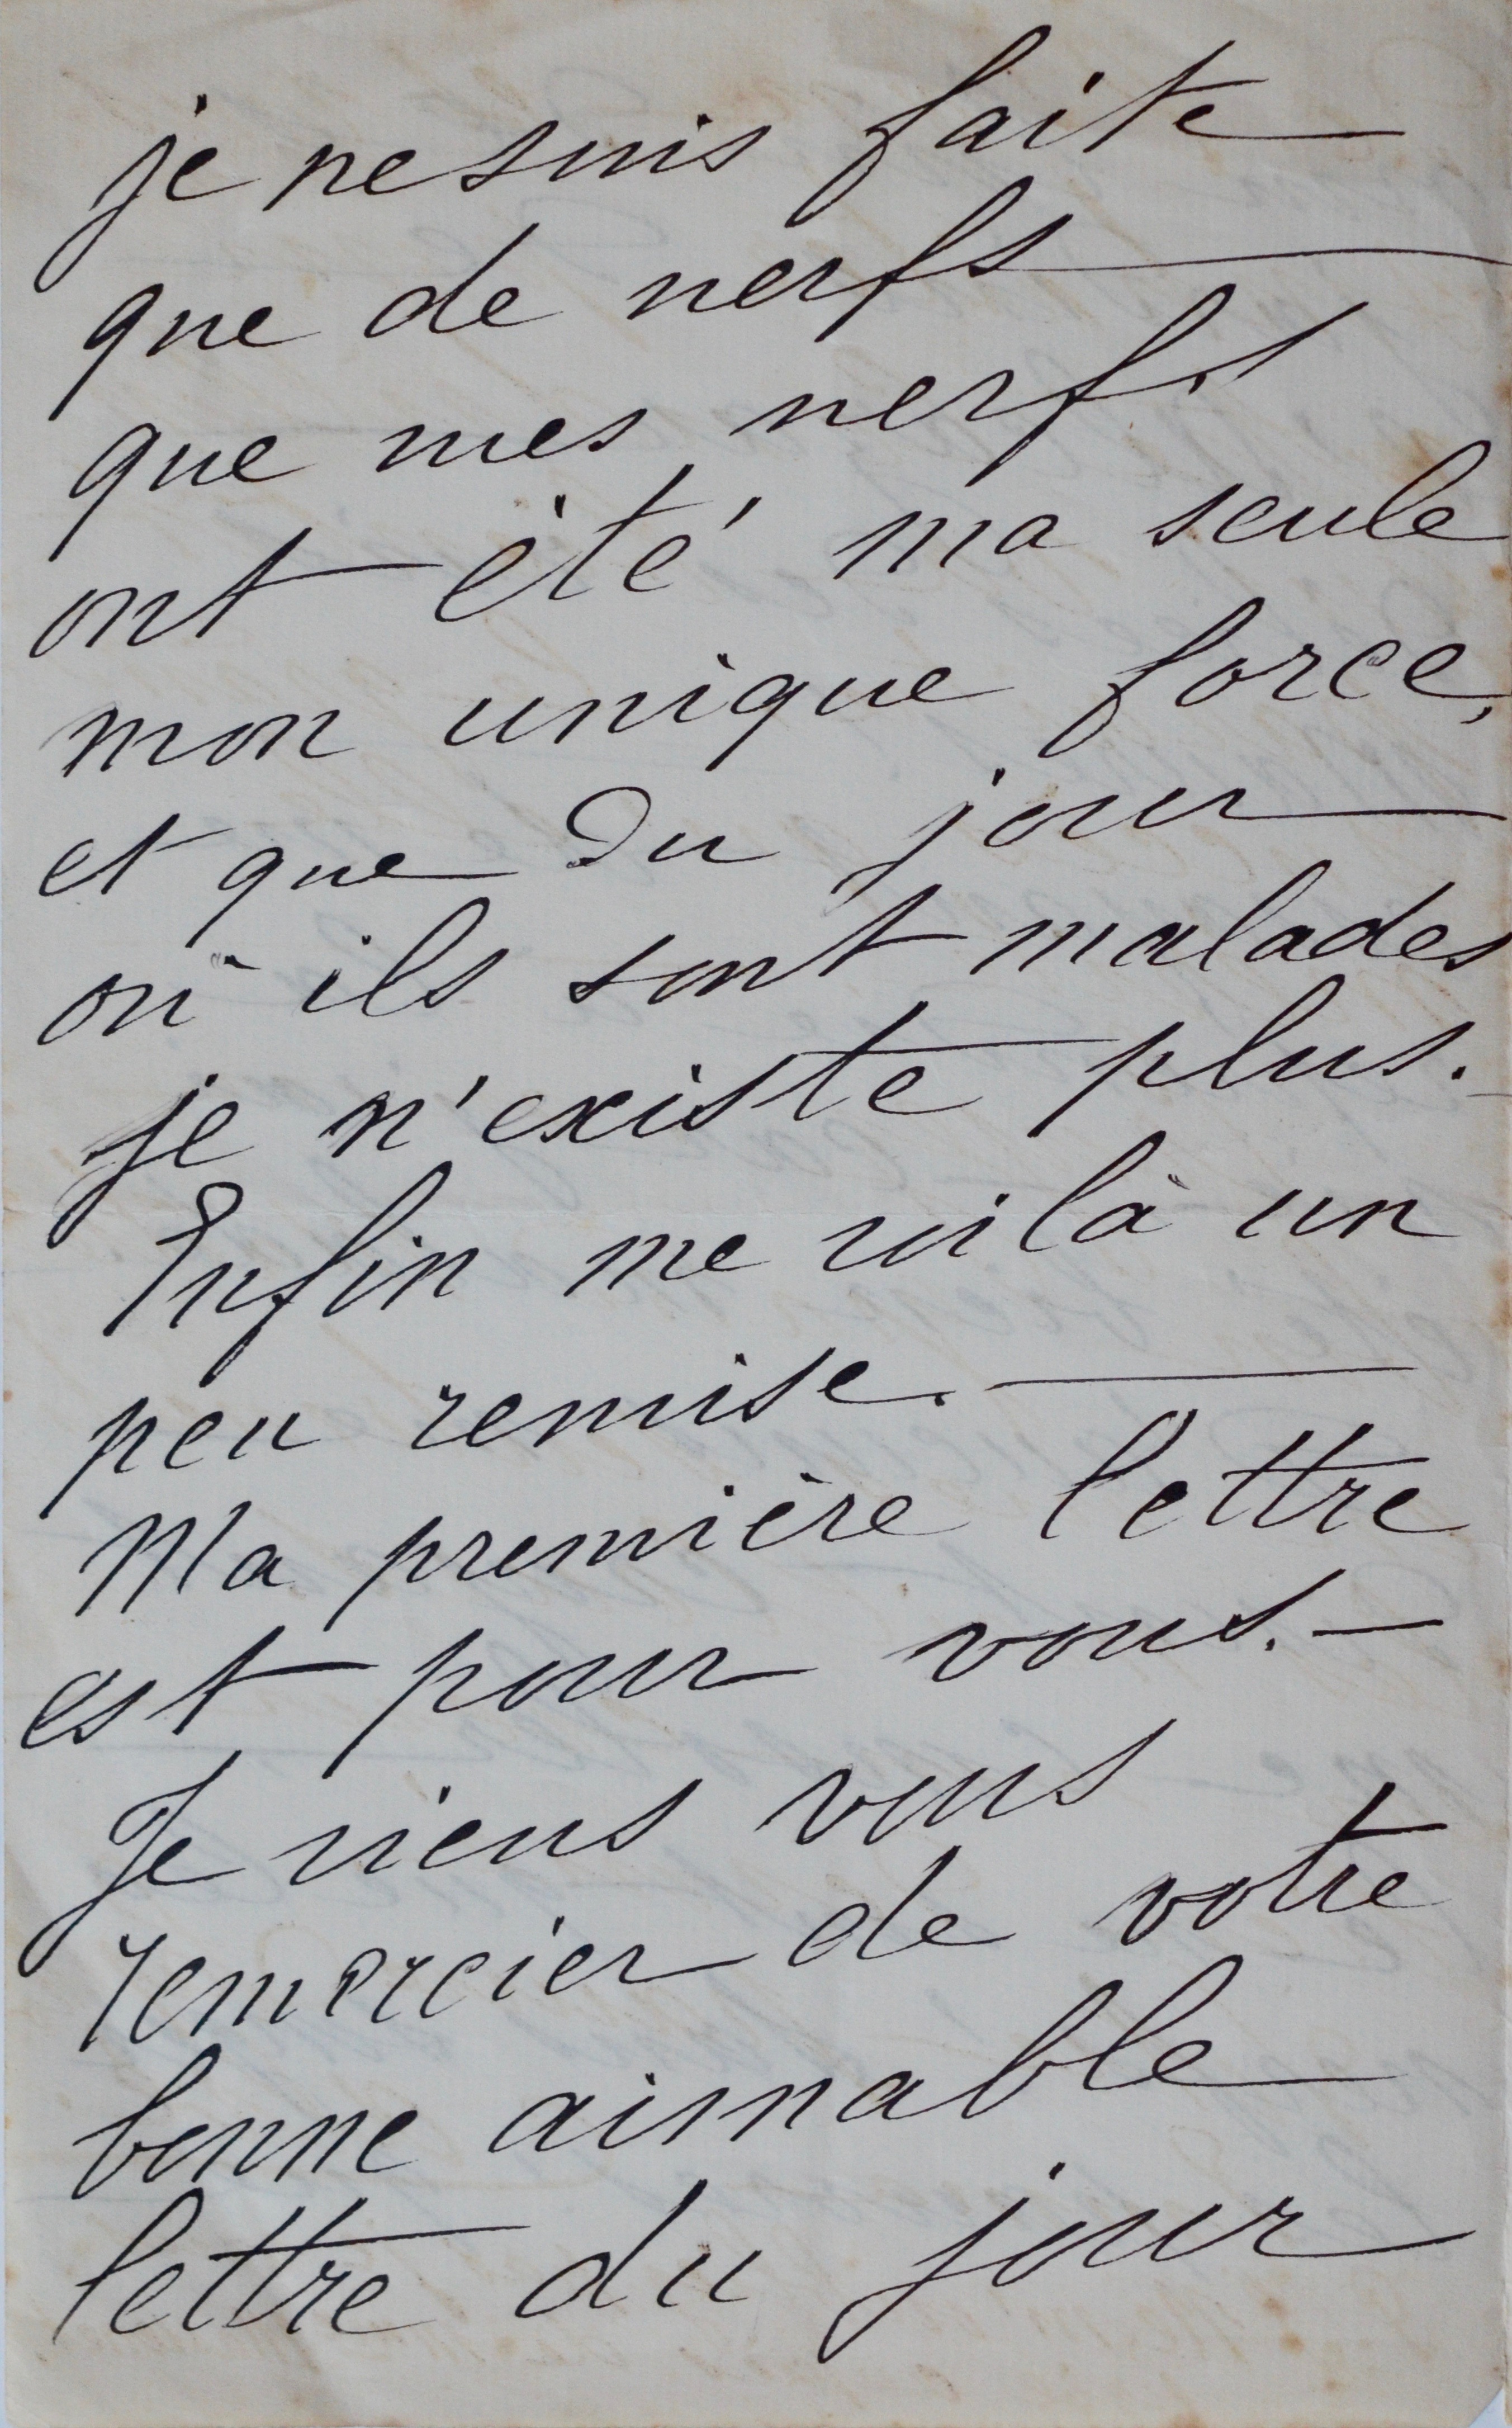 je ne suis faite
que de nerfs
que mes nerfs
ont été ma seule
mon unique force,
et que du jour
où ils sont malades
je n'existe plus. -
Enfin me voilà un
peu remise. —
Ma première lettre
est pour vous. -
Je viens vous
remercier de votre
bonne aimable
lettre du jour